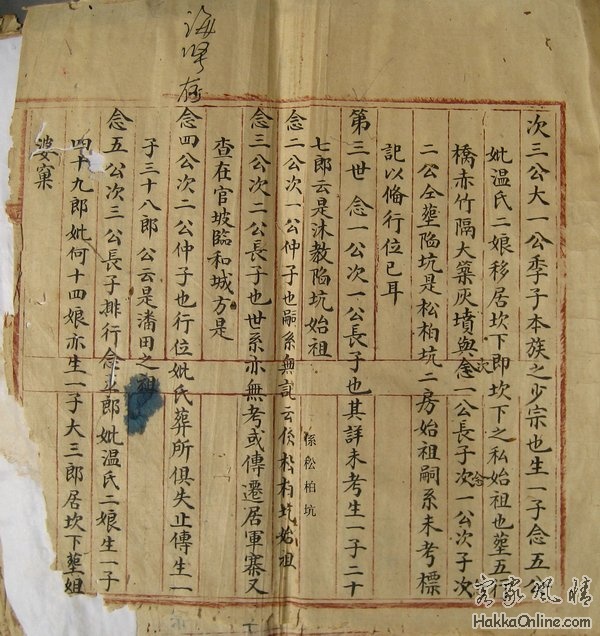 次三公大一公季子本族之少宗也生一子念五公
妣温氏二娘移居坎下即坎下之私始祖也塟五行
橋赤竹隔大築灰墳與念一公長子次一公次子次
次
念
二公仝塟陷坑是松柏坑二房始祖嗣系未考標
記以俻行位已耳
第三世 念一公次一公長子也其詳未考生一子二十
七郎云是沐教陷坑始祖
係松柏坑
念二公次一公仲子也嗣系無記云係松柏坑始祖
念三公次二公長子也世系亦無考或傳遷居軍寨又
查在官坡臨和城方是
念四公次二公仲子也行位妣氏葬所俱失止傳生一
子三十八郎公云是潘田之祖
念五公次三公長子排行念五郎妣温氏二娘生一子
四十九郎妣何十四娘亦生一子大三郎居坎下塟姐
婆窠
客家風情
HakkaOnline.com